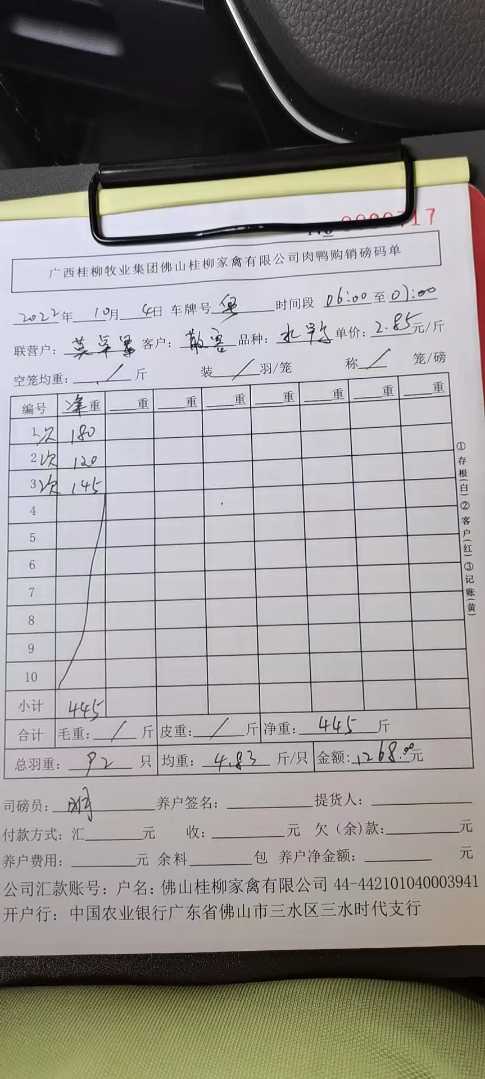 广西桂柳牧业集团佛山桂柳家禽有限公司肉鸭购销磅码单
2022年 10月 4日 车牌号 时间段 06:00至07:00
联营户: 客户: 散客 品种: 单价: 2.85元/斤
空笼均重: / 斤 装 / 羽/笼 称 / 笼/磅
编号 净重 重 重 重 重 重 重 重
1次 180
2次 120
3次 145
4
5
6
7
8
9
10
小计 445
合计 毛重: / 斤 皮重: / 斤 净重: 445 斤
总羽重: 92 只 均重: 4.83 斤/只 金额: 1268.00元
司磅员: 养户签名: 提货人:
付款方式: 汇 元 收: 元 欠(余)款: 元
养户费用: 元 余料 包 养户净金额: 元
公司汇款账号: 户名: 佛山桂柳家禽有限公司 44-442101040003941
开户行: 中国农业银行广东省佛山市三水区三水时代支行
①存根(白)②客户(红)③记账(黄)